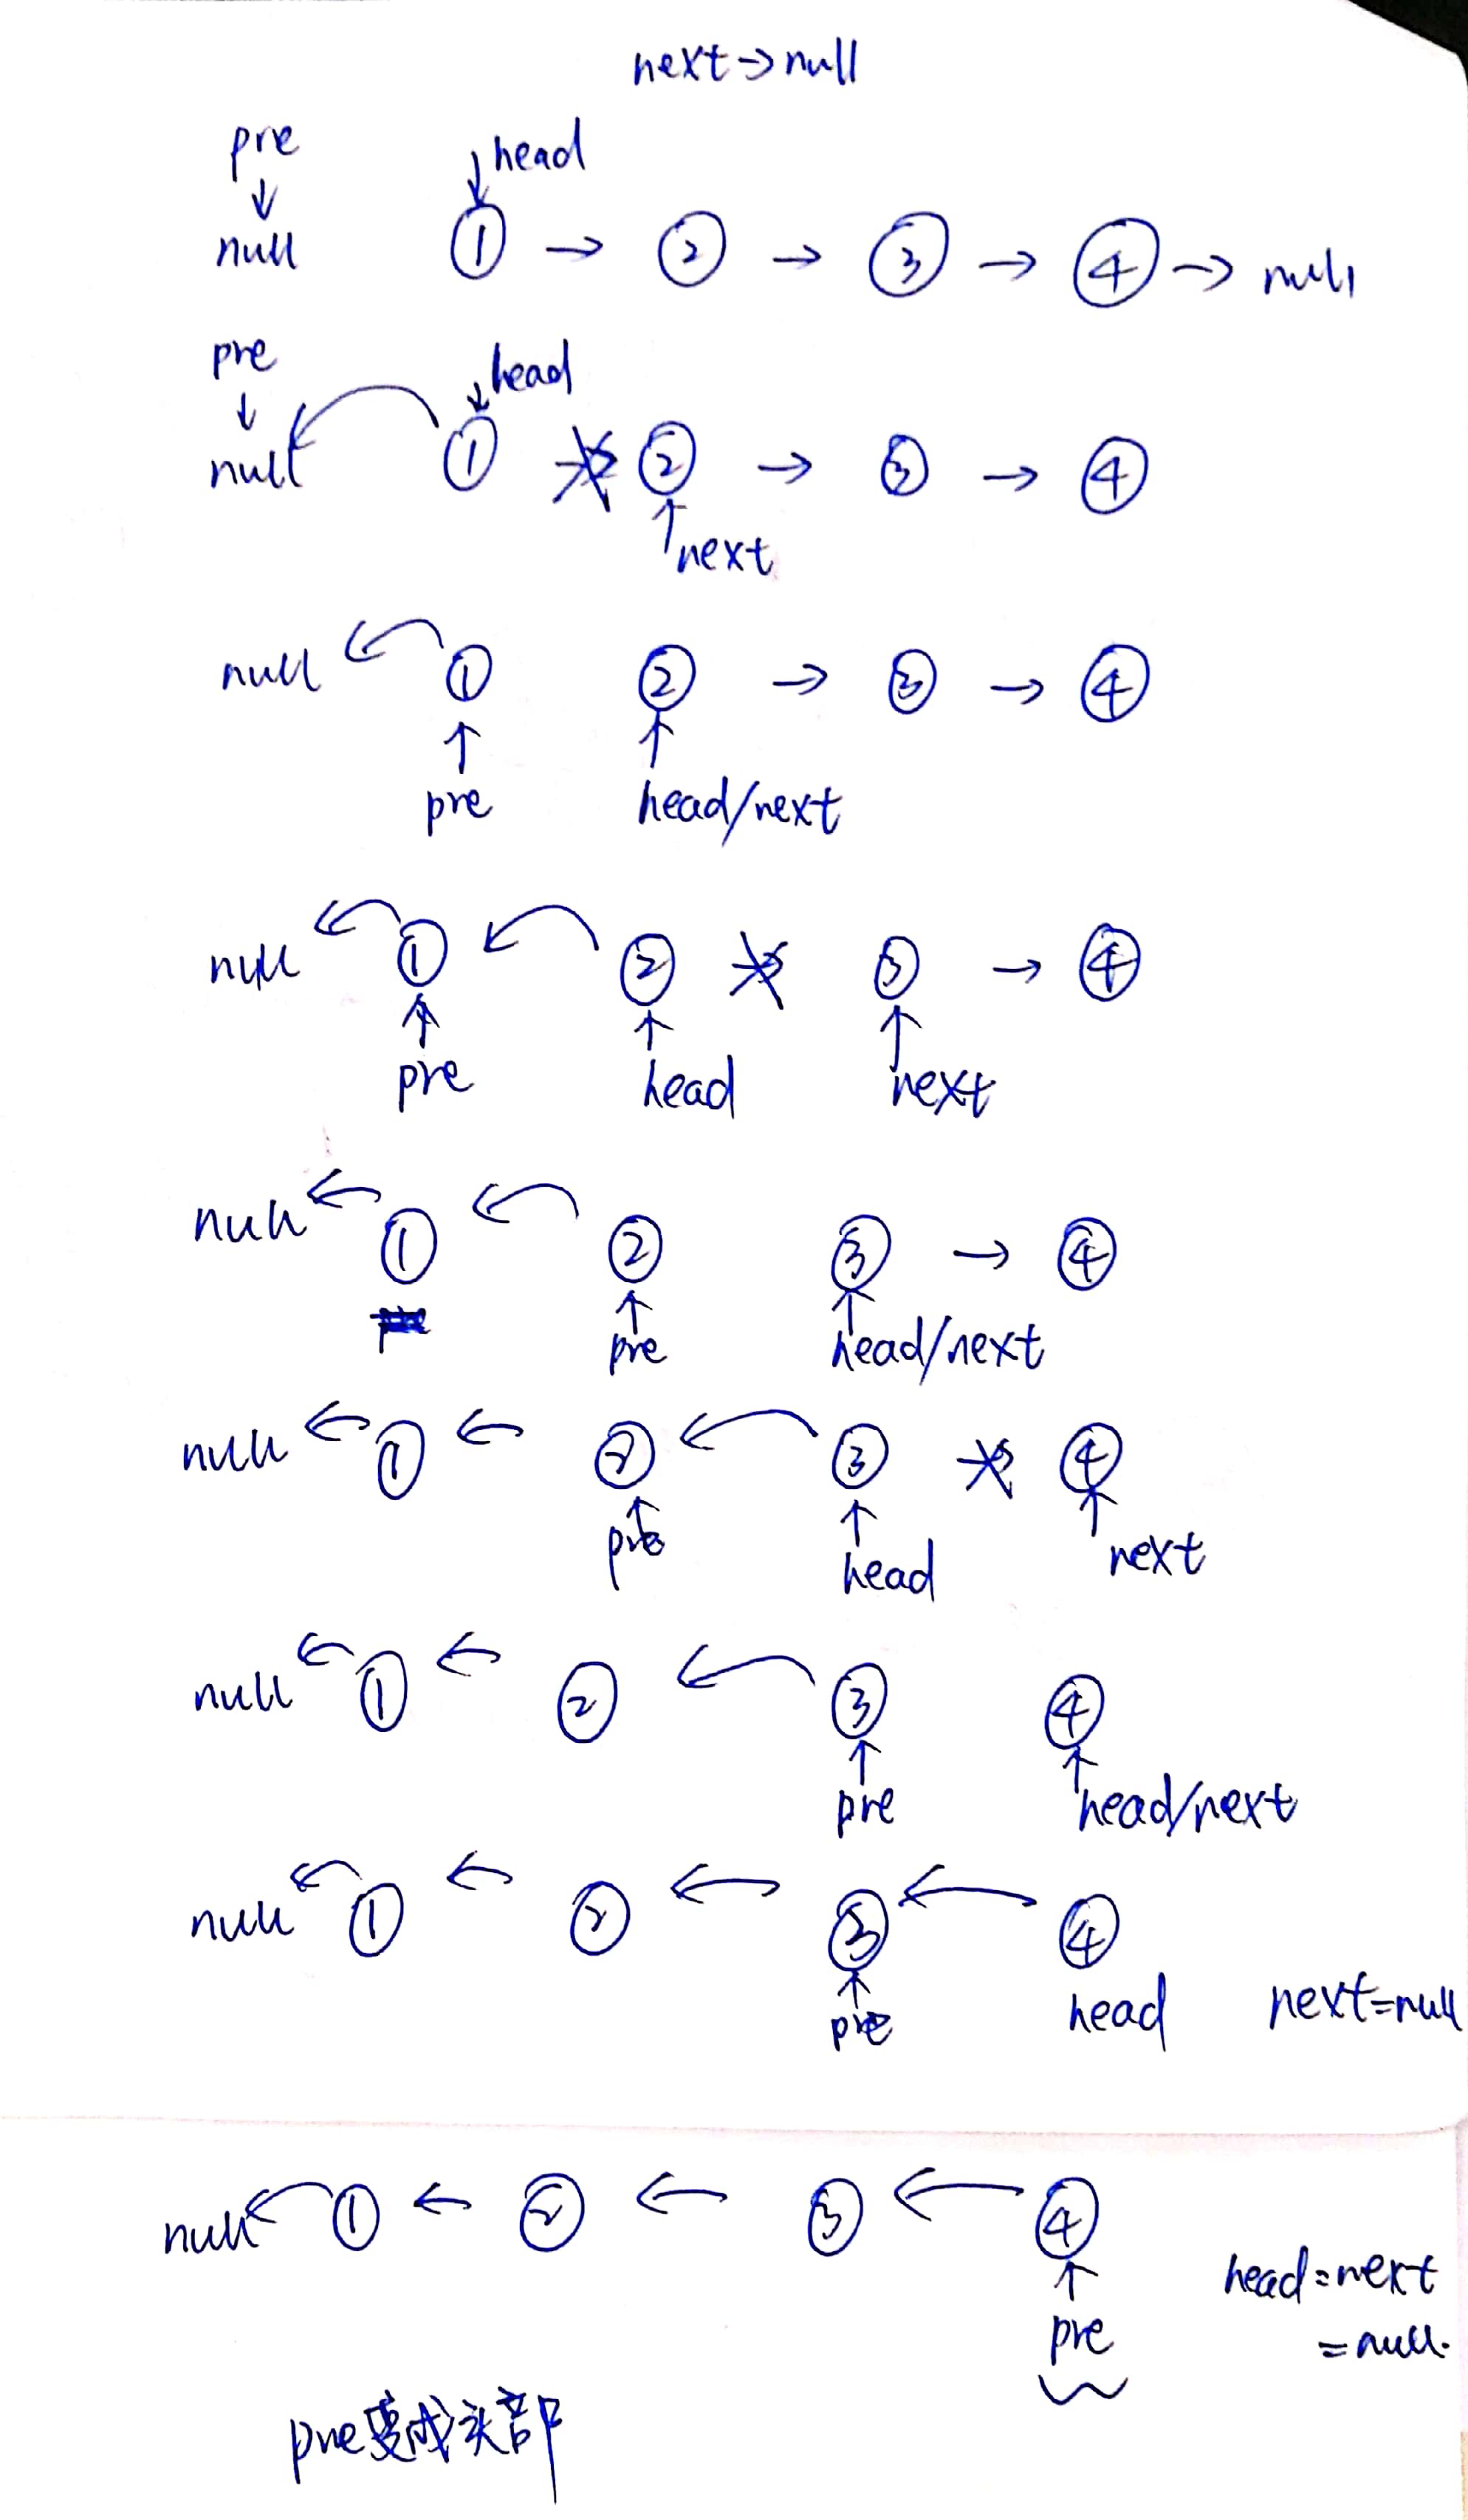 next→null
pre head
↓ ↓
null ① → ② → ③ → ④ → null
pre head
↓ ↓
null ① → ② → ③ → ④
↑ next
null ← ① ② → ③ → ④
↑ ↑
pre head/next
null ← ① ← ② → ③ → ④
↑ ↑ ↑
pre head next
null ← ① ← ② ③ → ④
↑ ↑
pre head/next
null ← ① ← ② ← ③ → ④
↑ ↑ ↑
pre head next
null ← ① ← ② ← ③ ④
↑ ↑
pre head/next
null ← ① ← ② ← ③ ← ④
↑
pre head next=null
null ← ① ← ② ← ③ ← ④
↑ head=next
pre =null.
pre变成头部